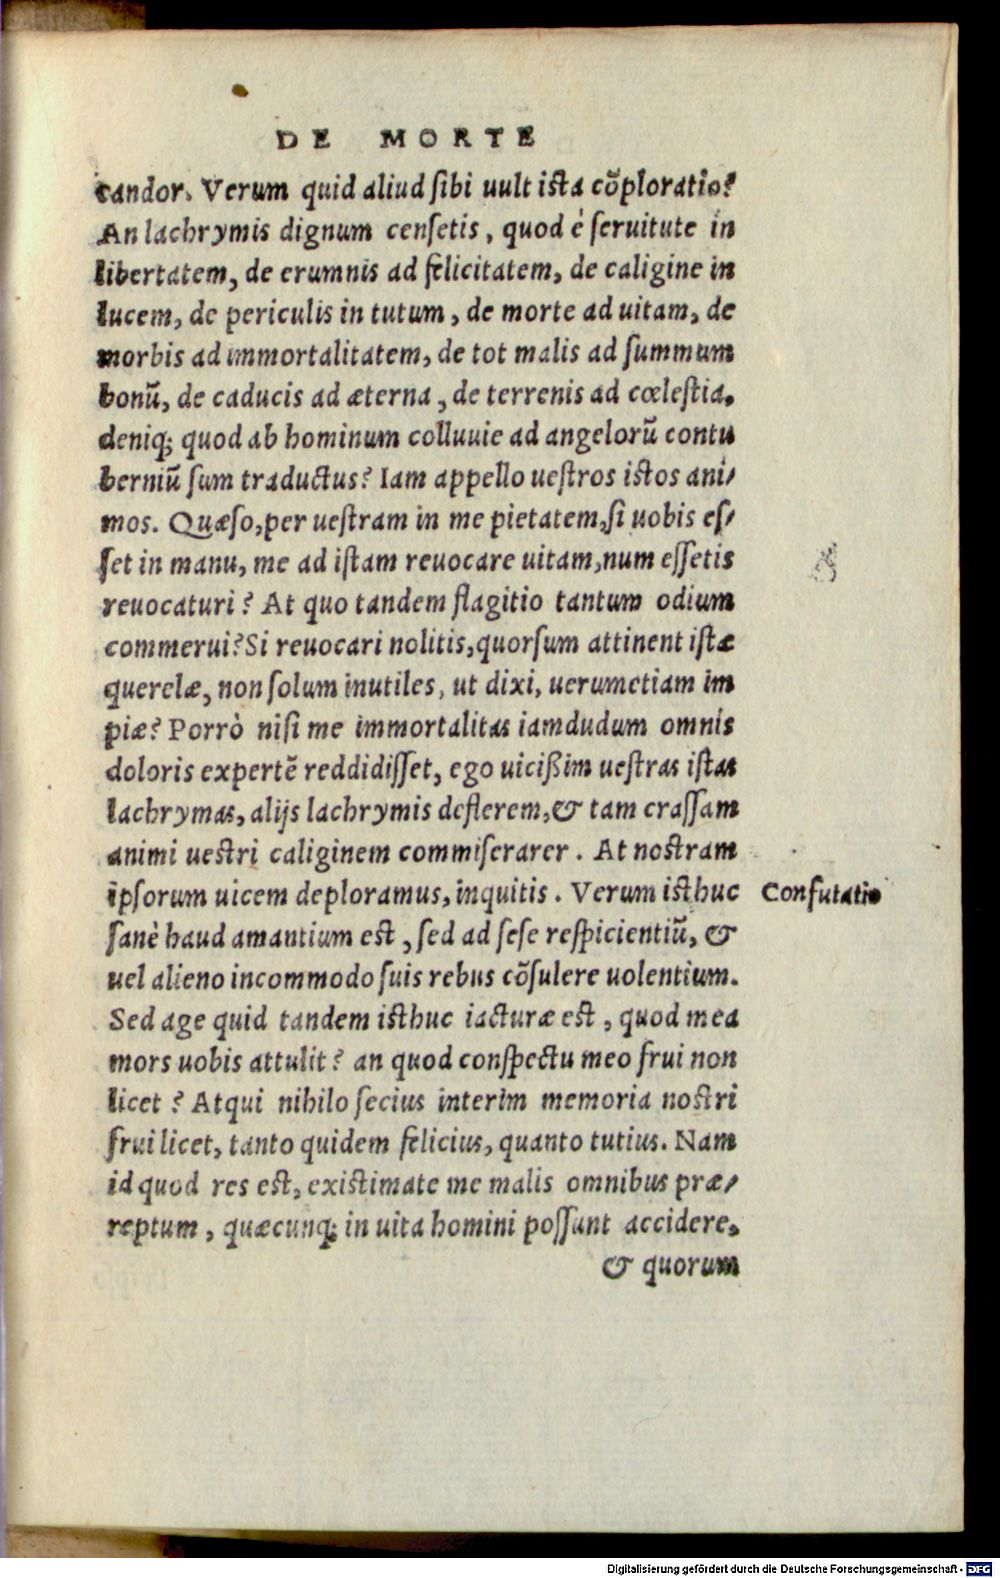 DE MORTE
candor. Verum quid aliud sibi uult ista cōploratio?
An lachrymis dignum censetis, quod è seruitute in
libertatem, de erumnis ad felicitatem, de caligine in
lucem, de periculis in tutum, de morte ad uitam, de
morbis ad immortalitatem, de tot malis ad summum
bonū, de caducis ad æterna, de terrenis ad cœlestia,
deniq; quod ab hominum colluuie ad angelorū contu
berniū sum traductus? Iam appello uestros istos ani/
mos. Quæso, per uestram in me pietatem, si uobis es/
set in manu, me ad istam reuocare uitam, num essetis
reuocaturi? At quo tandem flagitio tantum odium
commerui? Si reuocari nolitis, quorsum attinent istæ
querelæ, non solum inutiles, ut dixi, uerumetiam im
piæ? Porrò nisi me immortalitas iamdudum omnis
doloris expertē reddidisset, ego uicißim uestras istas
lachrymas, alijs lachrymis deflerem, & tam crassam
animi uestri caliginem commiserarer. At nostram
ipsorum uicem deploramus, inquitis. Verum isthuc Confutatio
sanè haud amantium est, sed ad sese respicientiū, &
uel alieno incommodo suis rebus cōsulere uolentium.
Sed age quid tandem isthuc iacturæ est, quod mea
mors uobis attulit? an quod conspectu meo frui non
licet? Atqui nihilo secius interim memoria nostri
frui licet, tanto quidem felicius, quanto tutius. Nam
id quod res est, existimate me malis omnibus præ/
reptum, quæcunq; in uita homini possunt accidere,
& quorum
Digitalisierung gefördert durch die Deutsche Forschungsgemeinschaft - DFG